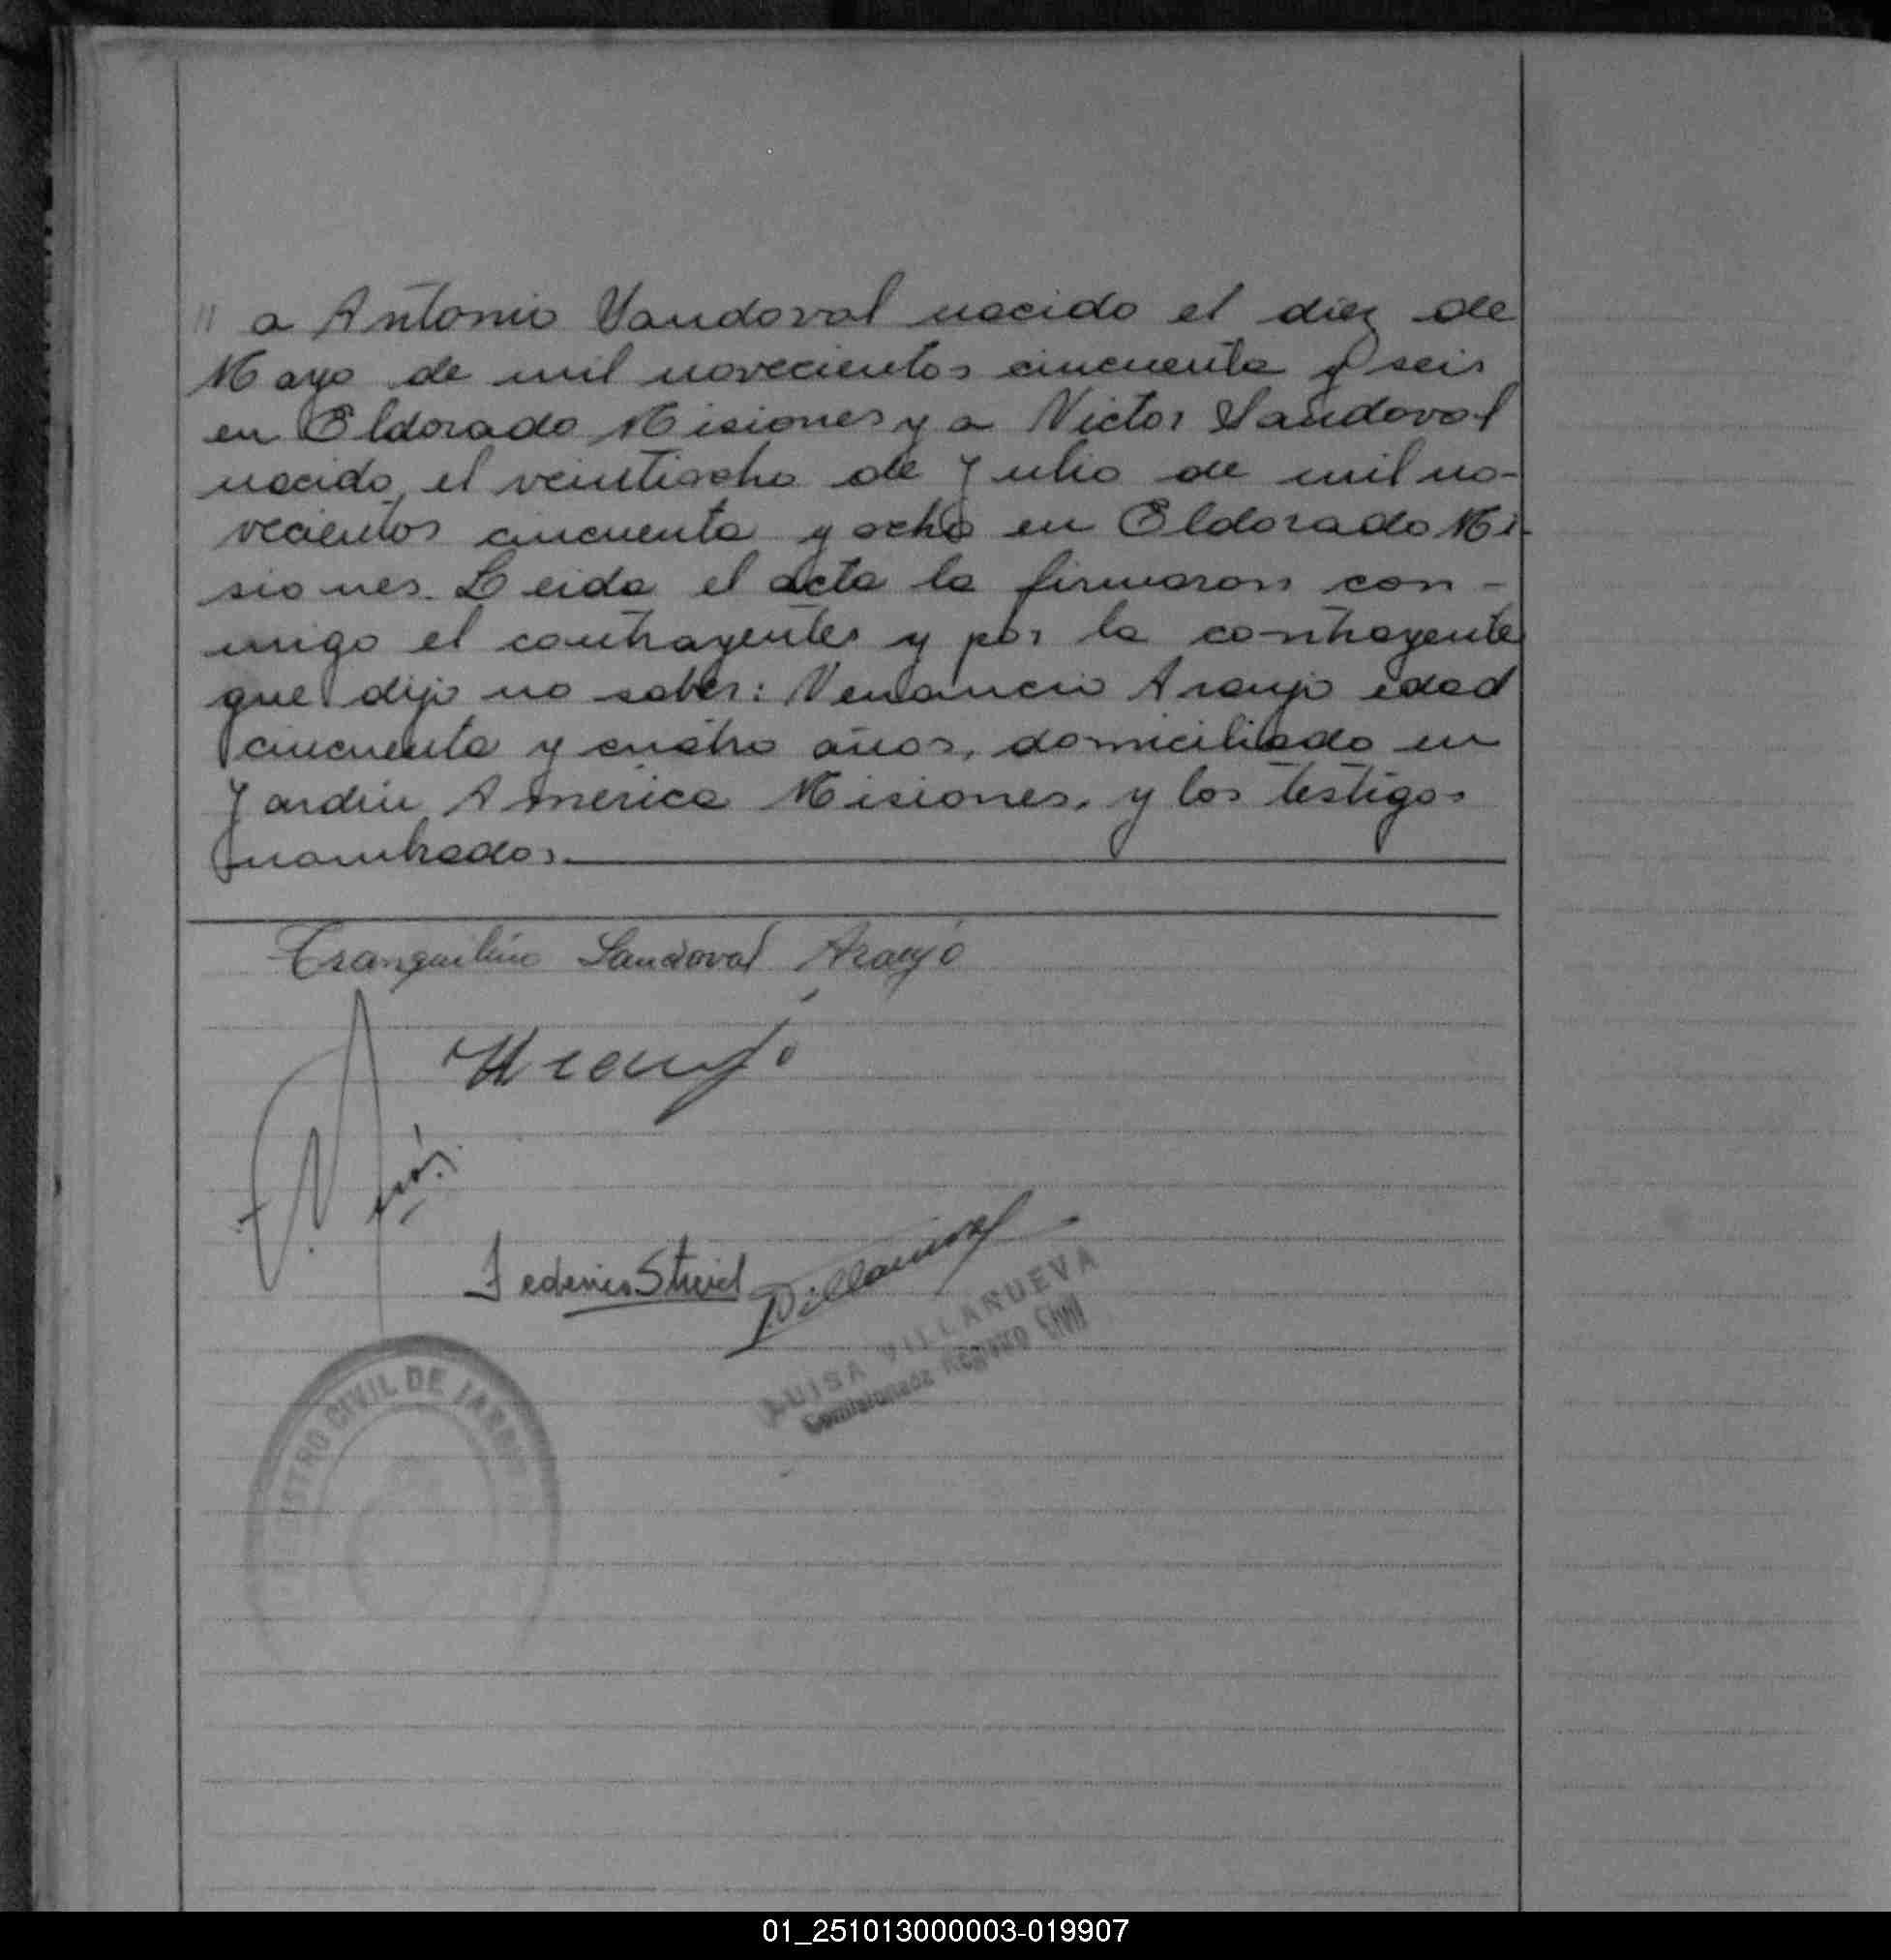 " a Antonio Sandoval nacido el diez de
Mayo de mil novecientos cincuenta y seis
en Eldorado Misiones y a Victor Sandoval
nacido, el veintiocho de Julio de mil no-
vecientos cincuenta y ocho en Eldorado Mi-
siones. Leida el acta la firmaron con-
migo el contrayentes y por la contrayente
que dijo no saber: Venancio Araujo edad
cincuenta y cuatro años, domiciliado en
Jardin America Misiones, y los testigos
nombrados.
Tranquilino Sandoval Araujo
Araujo
Federico
Villanueva
LUISA VILLANUEVA
Comisionada Registro Civil
REGISTRO CIVIL DE JARDIN
01_251013000003-019907